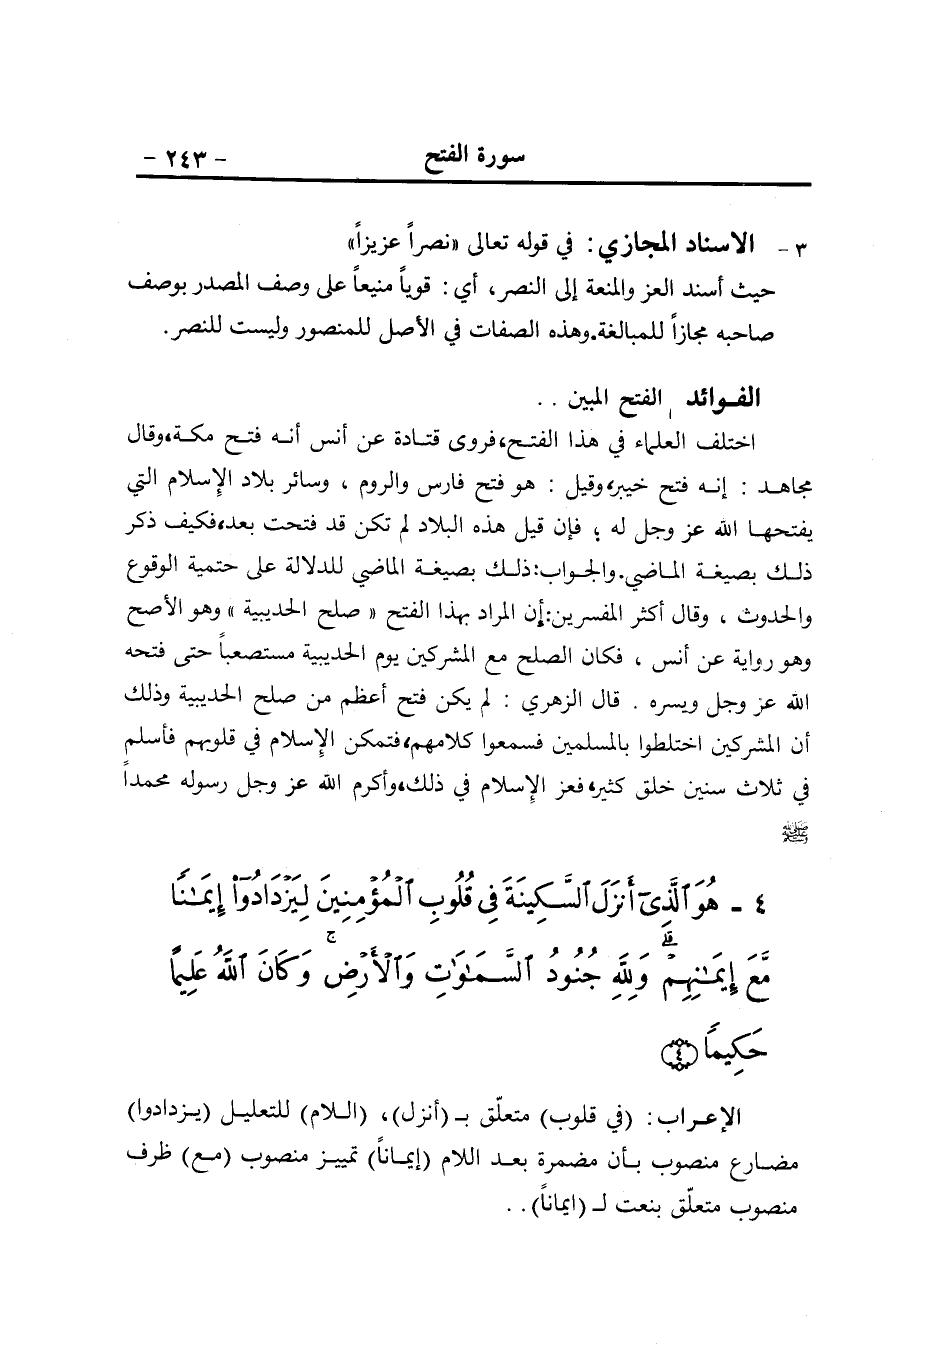 سورة الفتح - ٢٤٣ -
٣ - الاسناد المجازي: في قوله تعالى «نصراً عزيزاً»
حيث أسند العز والمنعة إلى النصر، أي: قوياً منيعاً على وصف المصدر بوصف
صاحبه مجازاً للمبالغة.وهذه الصفات في الأصل للمنصور وليست للنصر.
الفوائد الفتح المبين . .
اختلف العلماء في هذا الفتح،فروى قتادة عن أنس أنه فتح مكة،وقال
مجاهد : إنه فتح خيبر،وقيل : هو فتح فارس والروم ، وسائر بلاد الإسلام التي
يفتحها الله عز وجل له ؛ فإن قيل هذه البلاد لم تكن قد فتحت بعد،فكيف ذكر
ذلك بصيغة الماضي.والجواب:ذلك بصيغة الماضي للدلالة على حتمية الوقوع
والحدوث ، وقال أكثر المفسرين:إن المراد بهذا الفتح « صلح الحديبية » وهو الأصح
وهو رواية عن أنس ، فكان الصلح مع المشركين يوم الحديبية مستصعباً حتى فتحه
الله عز وجل ويسره . قال الزهري : لم يكن فتح أعظم من صلح الحديبية وذلك
أن المشركين اختلطوا بالمسلمين فسمعوا كلامهم،فتمكن الإسلام في قلوبهم فأسلم
في ثلاث سنين خلق كثير،فعز الإسلام في ذلك،وأكرم الله عز وجل رسوله محمداً
ﷺ
٤ - هُوَ ٱلَّذِىٓ أَنزَلَ ٱلسَّكِينَةَ فِى قُلُوبِ ٱلْمُؤْمِنِينَ لِيَزْدَادُوٓا۟ إِيمَٰنًا
مَّعَ إِيمَٰنِهِمْ ۗ وَلِلَّهِ جُنُودُ ٱلسَّمَٰوَٰتِ وَٱلْأَرْضِ ۚ وَكَانَ ٱللَّهُ عَلِيمًا
حَكِيمًا ٤
الإعراب: (في قلوب) متعلّق بـ(أنزل)، (اللام) للتعليل (يزدادوا)
مضارع منصوب بأن مضمرة بعد اللام (إيماناً) تمييز منصوب (مع) ظرف
منصوب متعلّق بنعت لـ (ايماناً). .